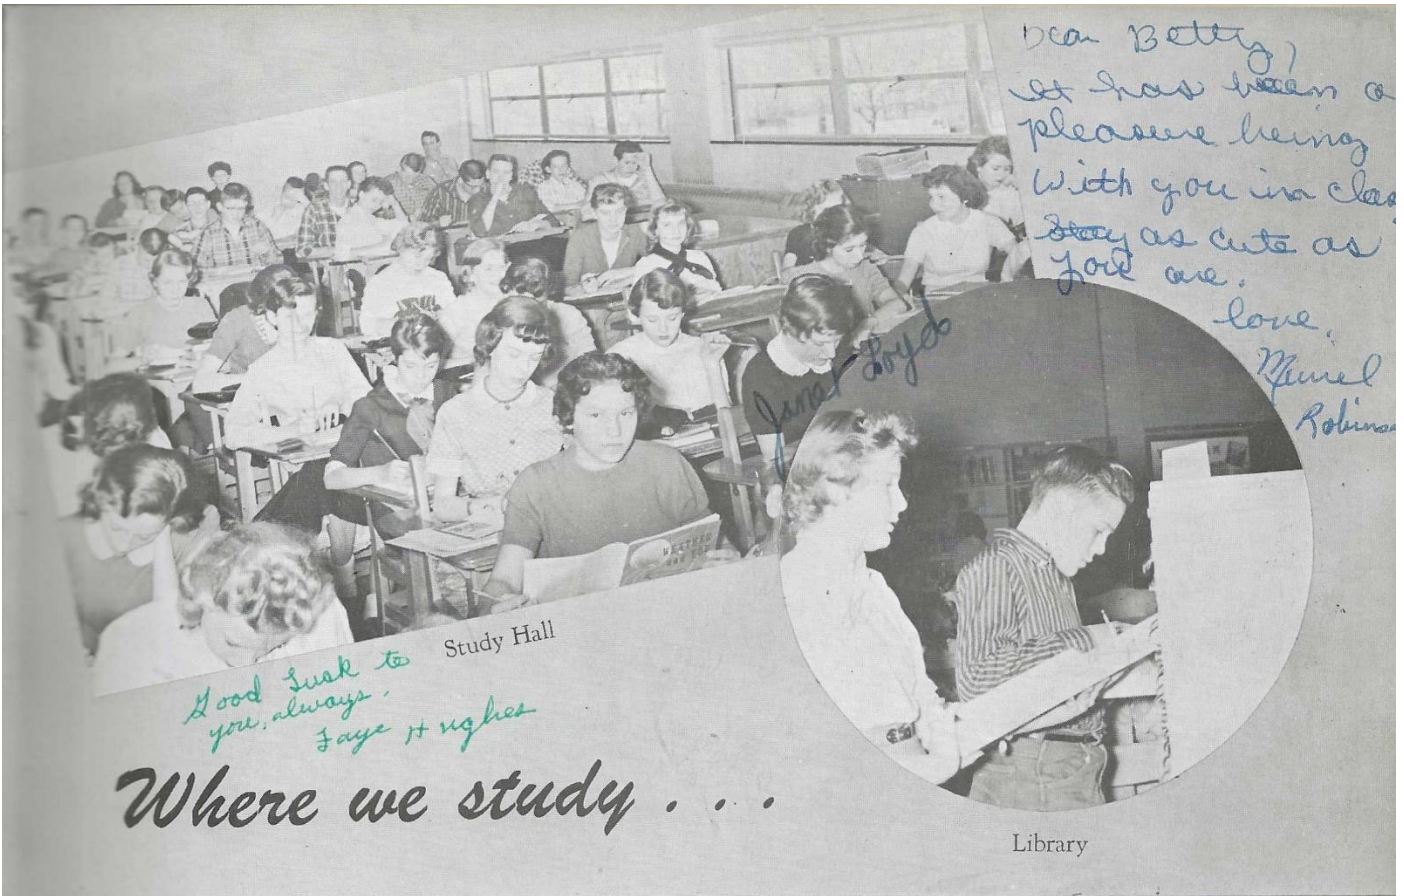 Dear Betty,
It has been a
pleasure being
with you in clas
Stay as cute as
you are.
love,
Muriel
Robins
Janet Loyd
WEATHER
AND YOU
Study Hall
Good Lusk to
you, always.
Faye Hughes
Where we study . . .
Library